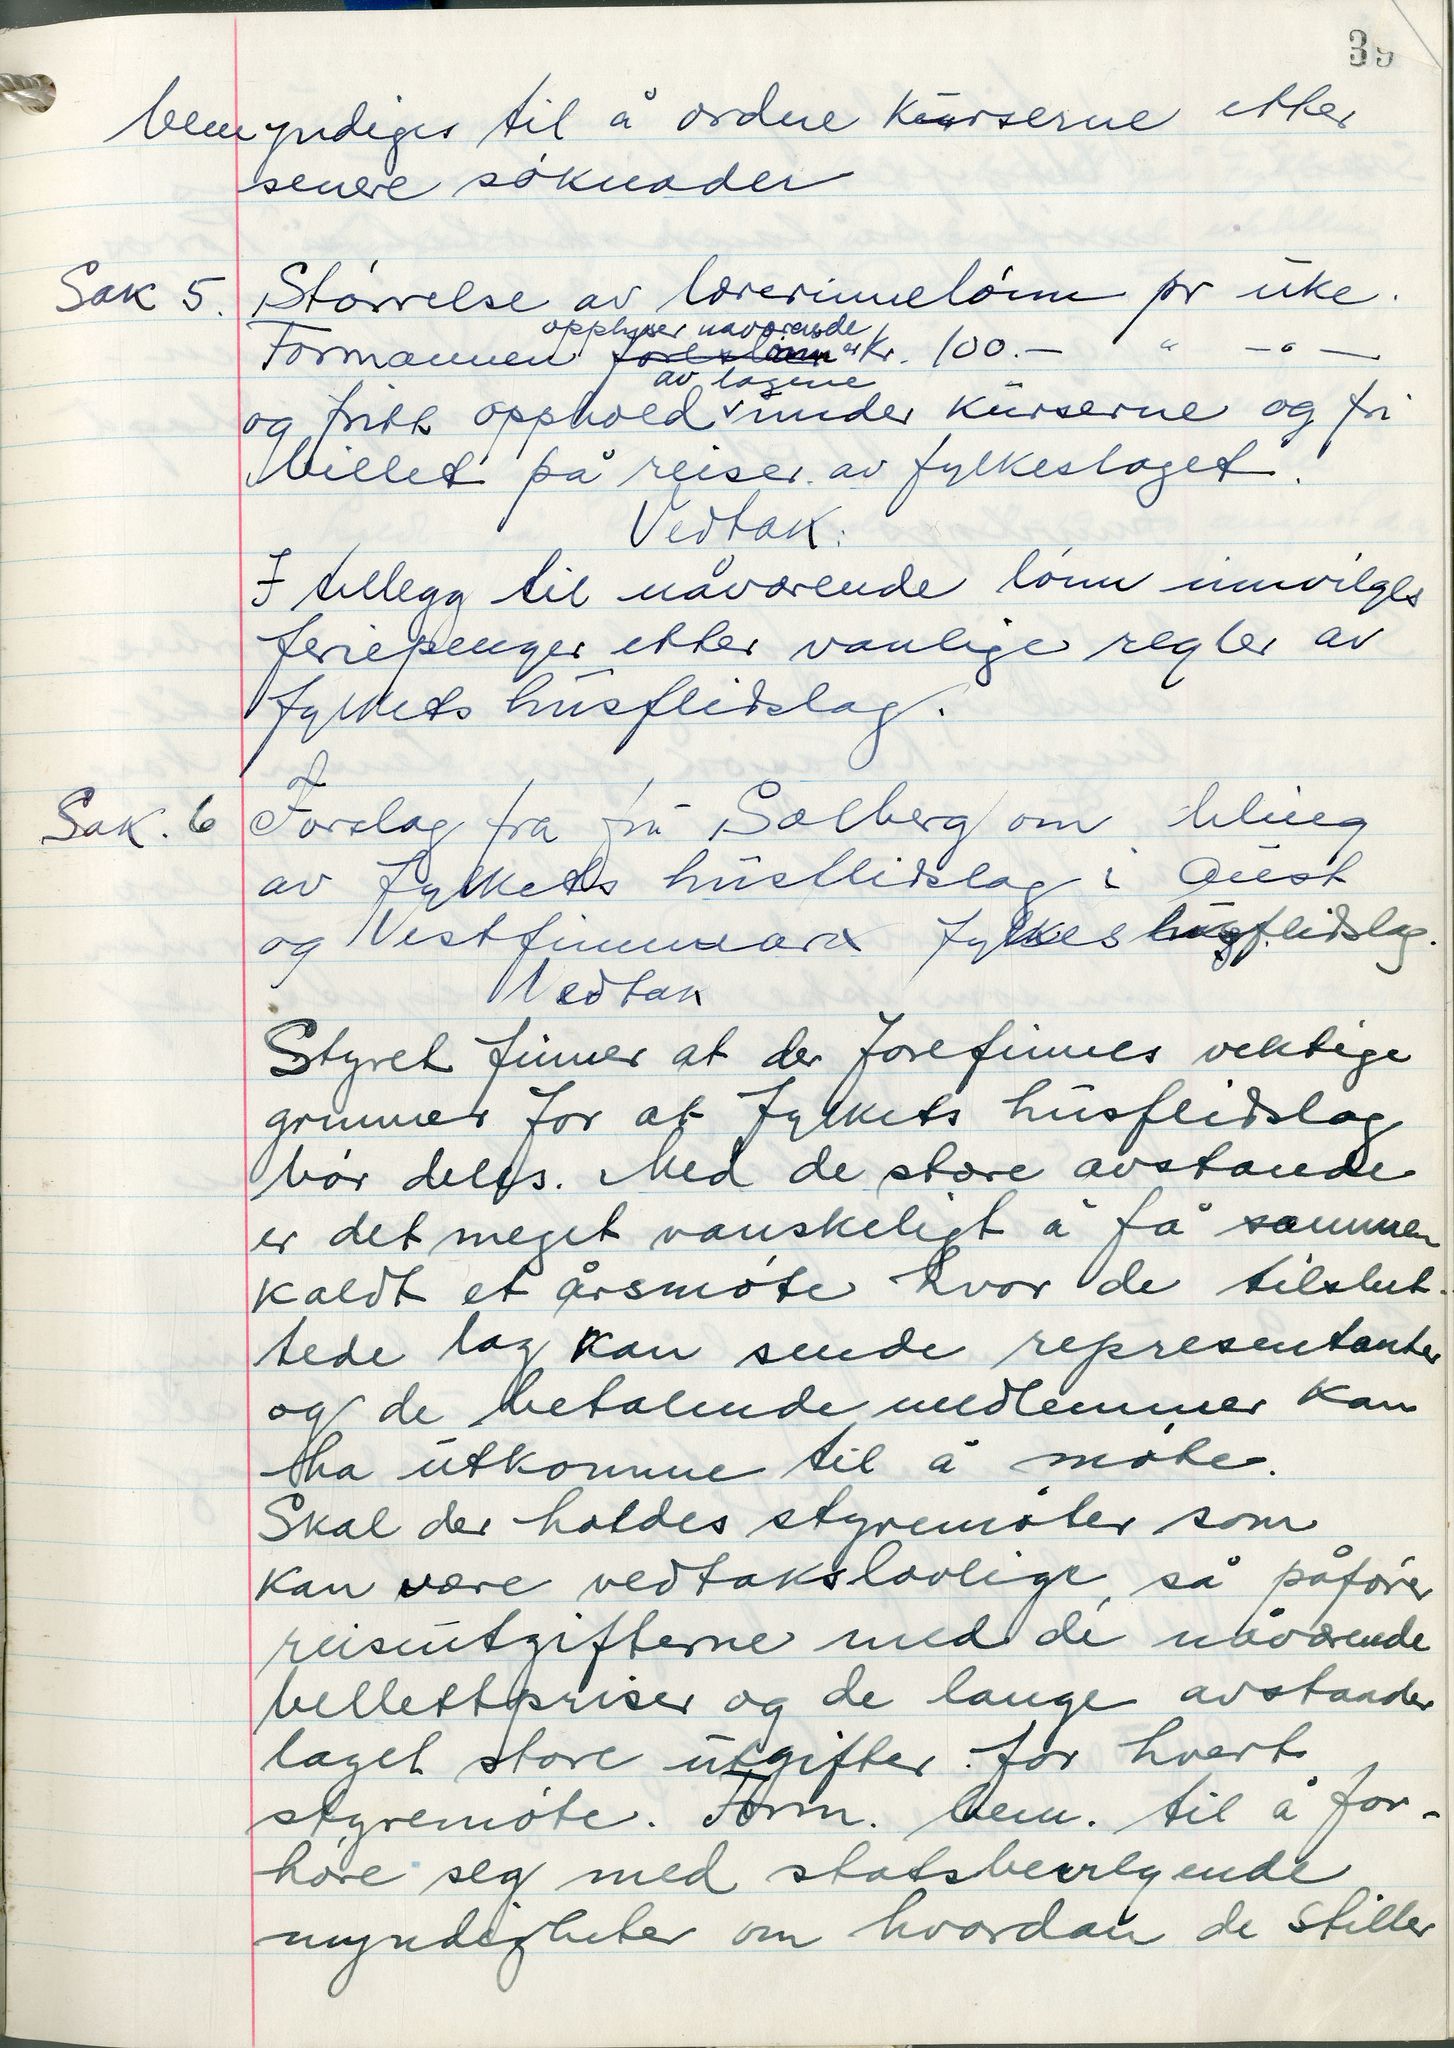 39
bemyndiges til å ordne kurserne etter
senere søknader
Sak 5. Størrelse av lærerinnelønn pr uke.
opplyser nåværende
Formannen lønn er Kr. 100.- " -"-
av lagene
og fritt opphold under kurserne og fri
billet på reiser av fylkeslaget.
Vedtak:
I tillegg til nåværende lønn innvilges
feriepenger etter vanlige regler av
fylkets husflidslag.
Sak. 6 Forslag fra fru Solberg om deling
av fylkets husflidslag i Aust
og Vestfinnmark fylkes husflidslag.
Vedtak
Styret finner at der forefinnes vektige
grunner for at fylkets husflidslag
bør deles. Med de store avstande
er det meget vanskeligt å få sammen
kaldt et årsmøte hvor de tilslut-
tede lag kan sende representanter
og de betalende medlemmer kan
ha utkomme til å møte.
Skal der holdes styremøter som
kan være vedtakslovlige, så påfører
reiseutgifterne med de nåværende
billettpriser og de lange avstander
laget store utgifter for hvert
styremøte. Form. bem. til å for-
høre seg med statsbevilgende
myndigheter om hvordan de stiller